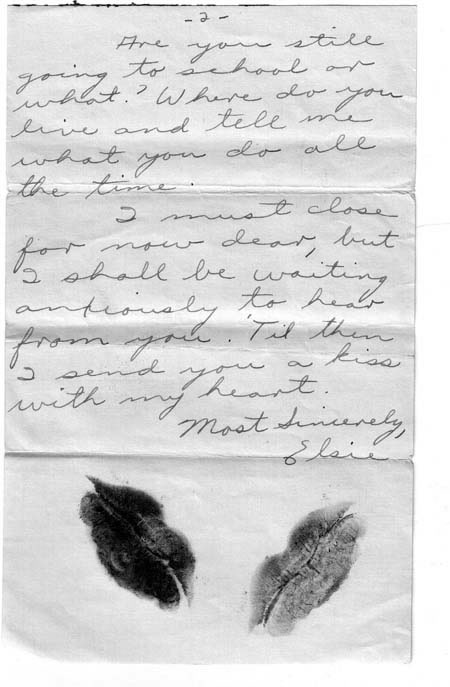 -2-
Are you still
going to school or
what? Where do you
live and tell me
what you do all
the time.
I must close
for now dear, but
I shall be waiting
anxiously to hear
from you. 'Til then
I send you a kiss
with my heart.
Most Sincerely,
Elsie